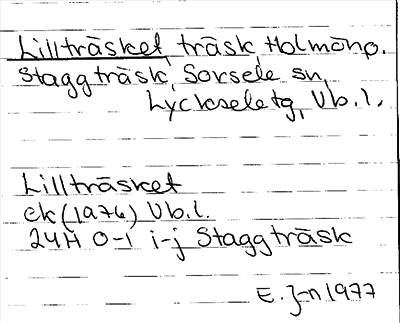 Lillträsket, träsk, Holmönp.
Staggträsk, Sorsele sn,
Lyckseletg, Vb.l.
Lillträsket
ek (1974) Vb.l.
24H 0-1 i-j Staggträsk
E. J-n 1977